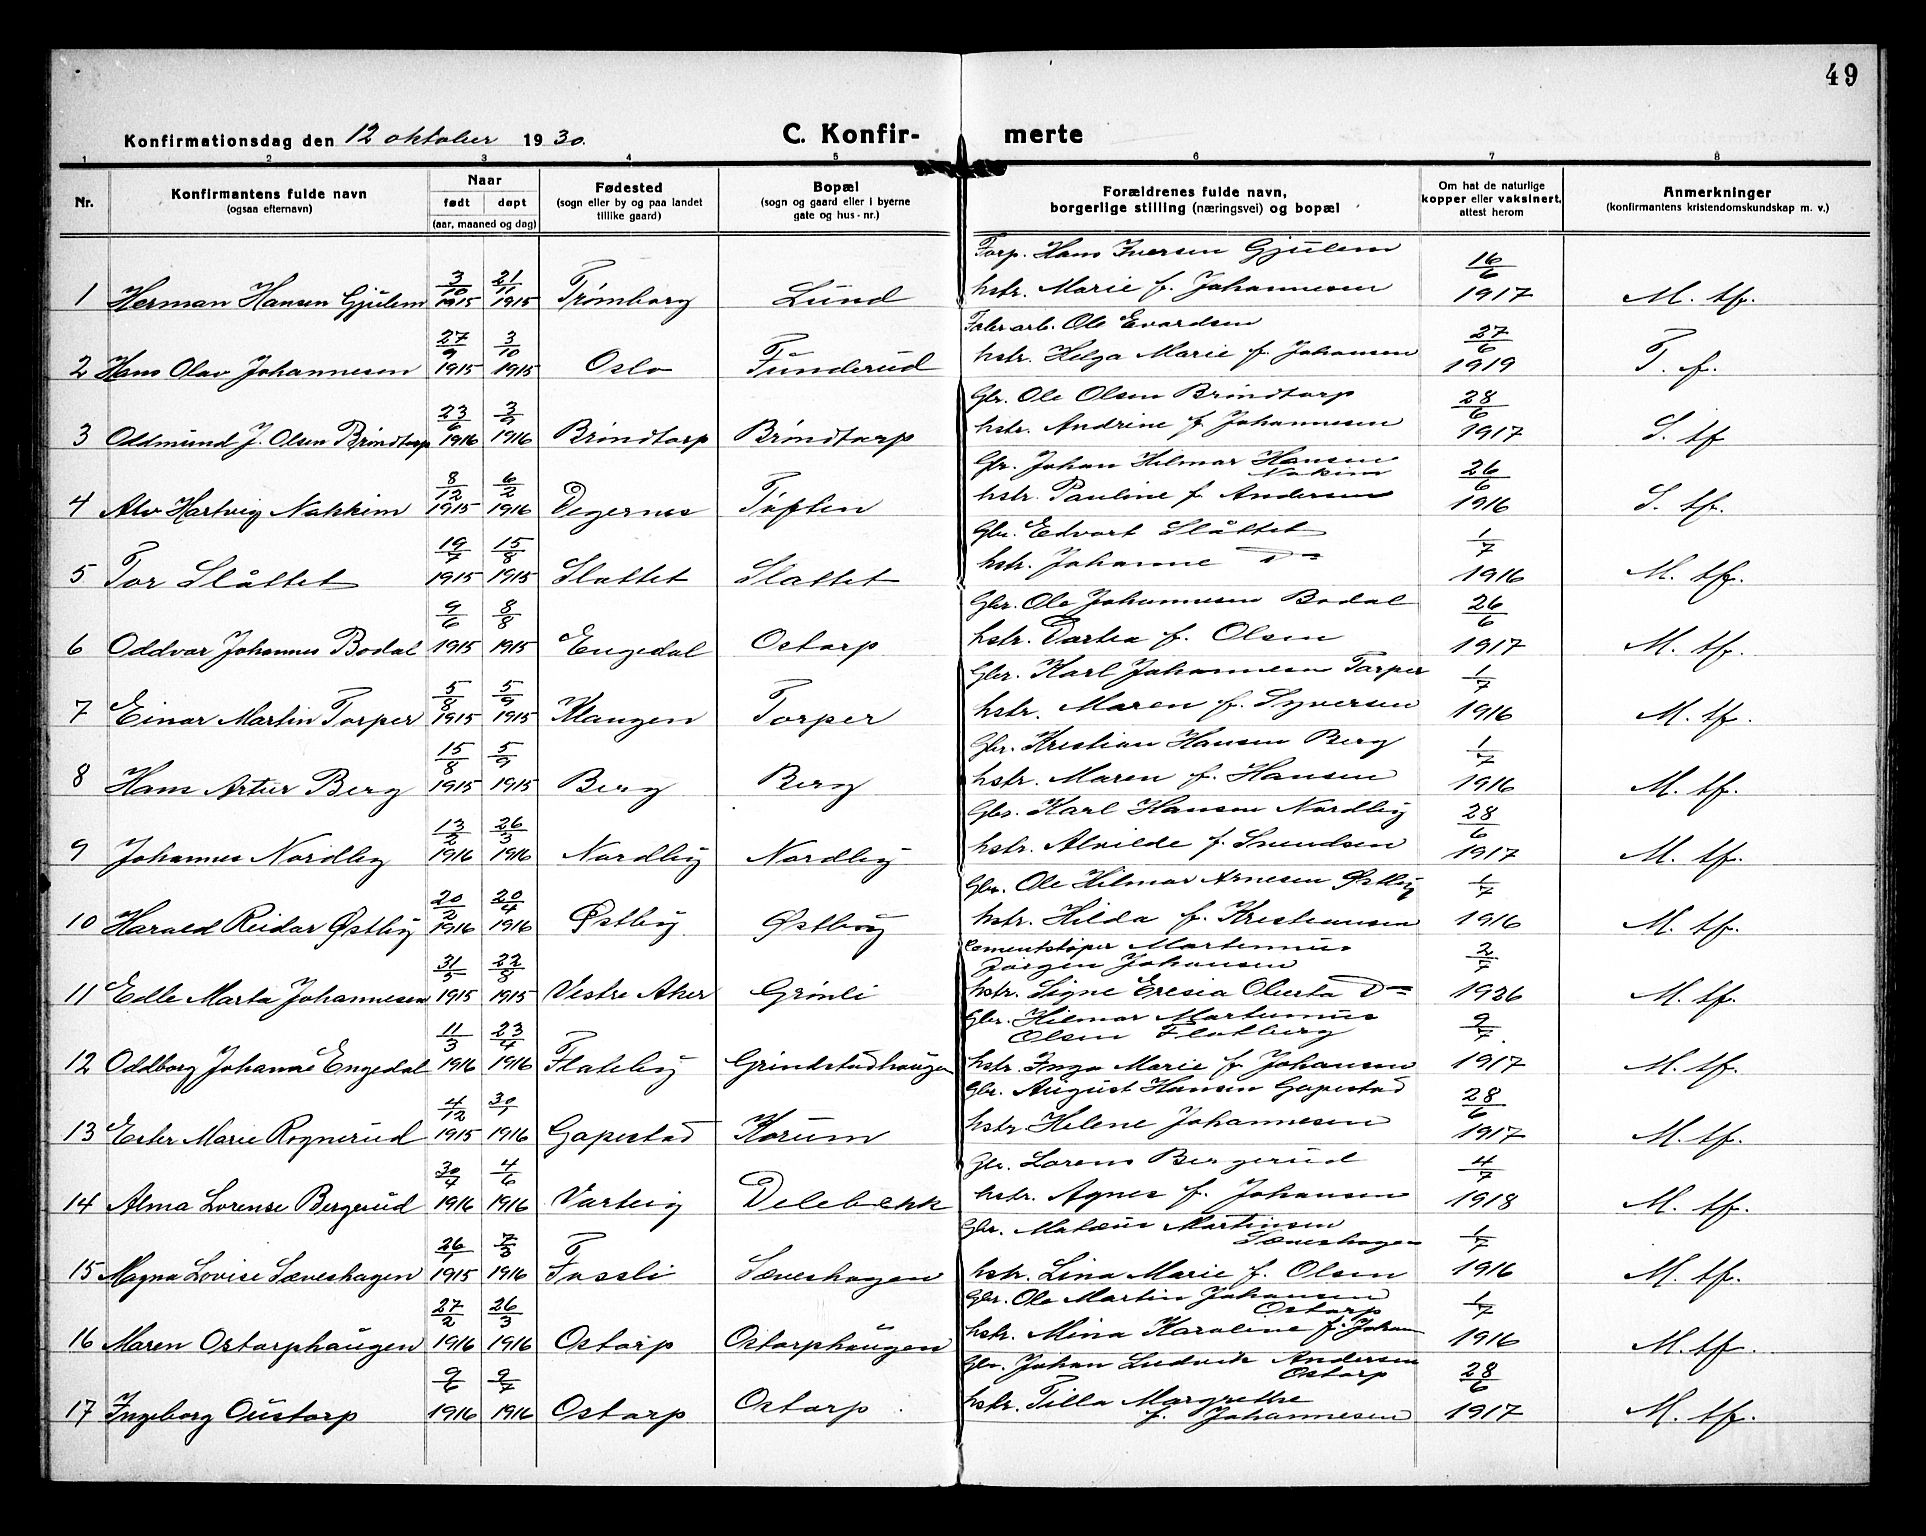 49
Konfirmationsdag den 12 oktober 1930.
C. Konfirmerte
1 2 3 4 5 6 7 8
Nr.
Konfirmantens fulde navn
(ogsaa efternavn)
Naar
født døpt
(aar, maaned og dag)
Fødested
(sogn eller by og paa landet
tillike gaard)
Bopæl
(sogn og gaard eller i byerne
gate og hus-nr.)
Forældrenes fulde navn,
borgerlige stilling (næringsvei) og bopæl
Om hat de naturlige
kopper eller vaksinert,
attest herom
Anmerkninger
(konfirmantens kristendomskundskap m. v.)
1 Herman Hansen Gjulem 3/10 1915 21/11 1915 Trømborg Lund Forp. Hans Iversen Gjulem
hstr. Marie f. Johannesen 16/6 1917 M. tf.
2 Hans Olav Johannesen 27/9 1915 3/10 1915 Oslo Funderud Fabr arb. Ole Evardsen
hstr. Helga Marie f. Johansen 27/6 1919 T. f.
3 Oddmund J. Olsen Brøndtorp 23/6 1916 3/9 1916 Brøndtorp Brøndtorp Gbr. Ole Olsen Brøndtorp
hstr. Andrine f. Johannesen 28/6 1917 S. tf
4 Alv Hartvig Nakkim 8/12 1915 6/2 1916 Degernes Tøften Gbr. Johan Hilmar Hansen
Nakim
hstr. Pauline f. Andersen 26/6 1916 S. tf.
5 Tor Slåttet 19/7 1915 15/8 1915 Slattet Slattet Gbr. Edvart Slåttet
hstr. Johanne D= 1/7 1916 M. tf.
6 Oddvar Johannes Bodal 9/6 1915 8/8 1915 Engedal Ostorp Gbr. Ole Johannesen Bodal
hstr. Dortea f. Olsen 26/6 1917 M. tf.
7 Einar Martin Torper 5/8 1915 5/9 1915 Mangen Torper Gbr. Karl Johannesen Torper
hstr. Maren f. Syversen 1/7 1916 M. tf.
8 Hans Artur Berg 15/8 1915 5/9 1915 Berg Berg Gbr. Kristian Hansen Berg
hstr. Maren f. Hansen 1/7 1916 M. tf.
9 Johannes Nordby 13/2 1916 26/3 1916 Nordby Nordby Gbr. Karl Hansen Nordby
hstr. Alvilde f. Snendsen 28/6 1917 M. tf.
10 Harald Reidar Østby 20/2 1916 20/4 1916 Østby Østby Gbr. Ole Hilmar Arnesen Østby
hstr. Hilda f. Kristiansen 1/7 1916 M. tf.
11 Edle Marta Johannesen 31/5 1915 22/8 1915 Vestre Aker Grønli Cementstøper Martinius
Jørgen Johansen
hstr. Signe Eresia Olurta D= 2/7 1926 M. tf.
12 Oddborg Johanne Engedal 11/3 1916 23/4 1916 Flateby Grindstadhaugen Gbr. Hilmar Martinius
Olsen Flatberg
hstr. Inga Marie f. Johansen 9/7 1917 M. tf.
13 Ester Marie Rognerud 4/12 1915 30/1 1916 Gapestad Korum Gbr. August Hansen Gapestad
hstr. Helene Johannesen 28/6 1917 M. tf.
14 Alma Lorense Bergerud 30/4 1916 4/6 1916 Varteig Delebekk Gbr. Lorens Bergerud
hstr. Agnes f. Johansen 4/7 1918 M. tf.
15 Magna Lovise Sæveshagen 26/1 1915 7/3 1916 Fossli Sæveshagen Gbr. Mateus Martinsen
Sæveshagen
hstr. Lina Marie f. Olsen 1/7 1916 M. tf.
16 Maren Ostorphaugen 27/2 1916 26/3 1916 Ostorp Ostorphaugen Gbr. Ole Martin Johansen
Ostorp
hstr. Mina Karoline f. Johan 1/7 1916 M. tf.
17 Ingeborg Oustorp 9/6 1916 9/7 1916 Ostorp Ostorp. Gbr. Johan Ludvik Andersen
Ostorp
hstr. Tilla Margrethe
f. Johannesen 28/6 1917 M. tf.